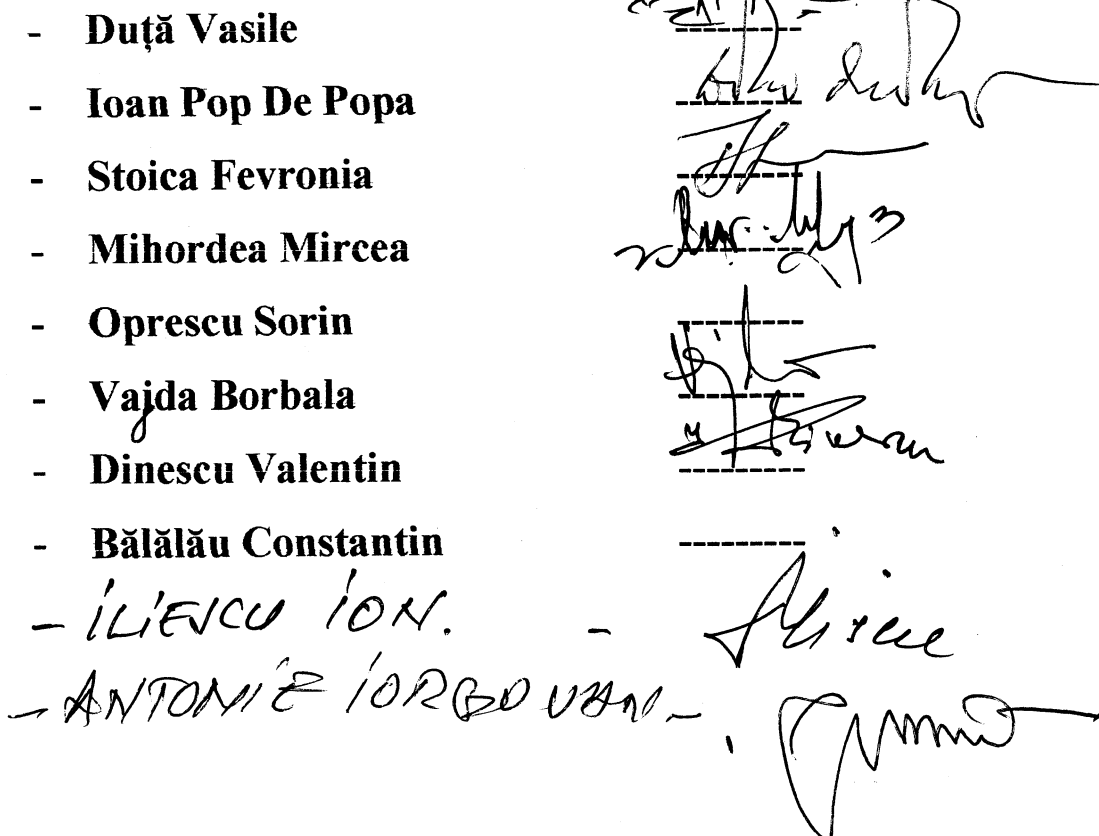 - Duță Vasile
- Ioan Pop De Popa
- Stoica Fevronia
- Mihordea Mircea
- Oprescu Sorin
- Vajda Borbala
- Dinescu Valentin
- Bălălău Constantin
- ILIESCU ION. -
- ANTONIE IORGOVAN. -